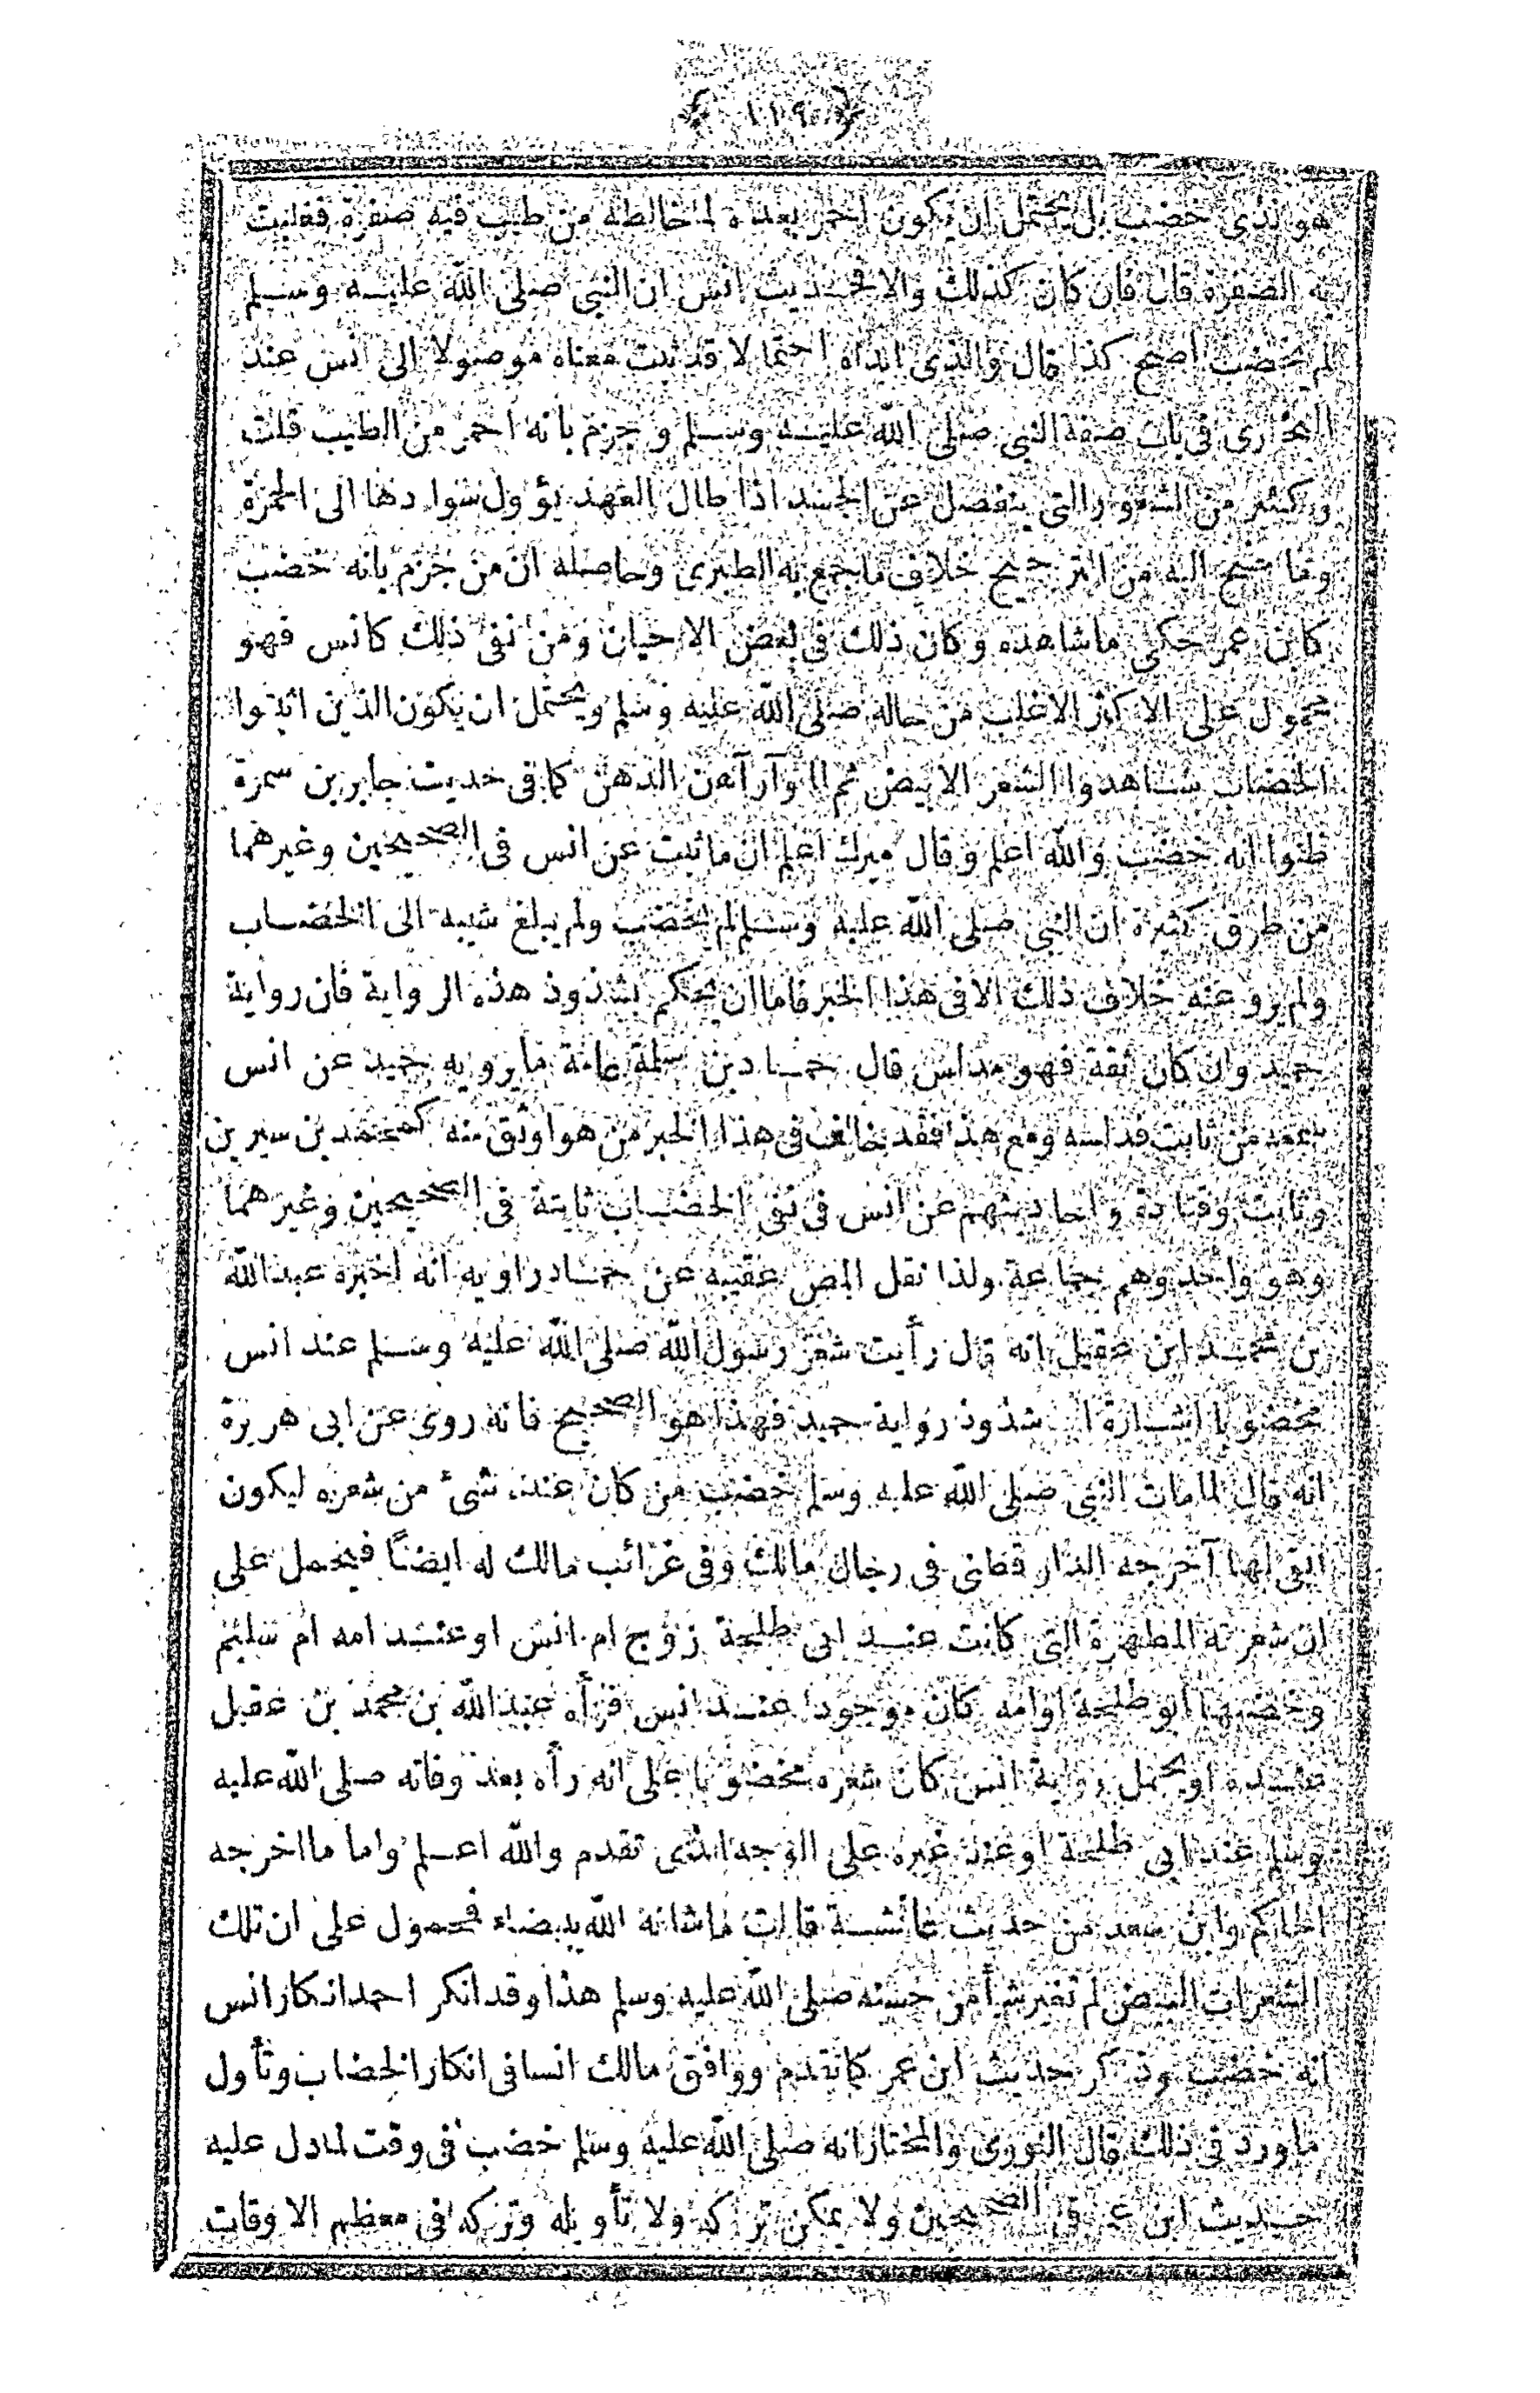 ﴿ ١١٩ ﴾
هو الذى خضب بل يحتمل ان يكون احمر بعده لما خالطه من طيب فيه صفرة فغلبت
به الصفرة قال فان كان كذلك والا فحديث انس ان النبى صلى الله عليه وسلم
لم يخضب اصح كذا قال والذى ابداه احتمالا قد ثبت معناه موصولا الى انس عند
البخارى فى باب صفة النبى صلى الله عليه وسلم وجزم بانه احمر من الطيب قلت
وكثير من الشعور التى ينفصل عن الجسد اذا طال العهد يؤول سوادها الى الحمرة
وما جنح اليه من الترجيح خلاف ما جمع به الطبرى وحاصله ان من جزم بانه خضب
كابن عمر حكى ما شاهده وكان ذلك فى بعض الاحيان ومن نفى ذلك كانس فهو
محمول على الاكثر الاغلب من حاله صلى الله عليه وسلم ويحتمل ان يكون الذين اثبتوا
الخضاب شاهدوا الشعر الابيض ثم لما وارآهن الدهن كما فى حديث جابر بن سمرة
ظنوا انه خضب والله اعلم وقال ميرك اعلم ان ما ثبت عن انس فى الصحيحين وغيرهما
من طرق كثيرة ان النبى صلى الله عليه وسلم لم يخضب ولم يبلغ شيبه الى الخضاب
ولم يرو عنه خلاف ذلك الا فى هذا الخبر فاما ان يحكم بشذوذ هذه الرواية فان رواية
حميد وان كان ثقة فهو مدلس قال حماد بن سلمة عامة ما يرويه حميد عن انس
سمعه من ثابت فدلسه ومع هذا فقد خالف فى هذا الخبر من هو اوثق منه كمحمد بن سيرين
وثابت وقتادة واحاديثهم عن انس فى نفى الخضاب ثابتة فى الصحيحين وغيرهما
وهو واحد وهم جماعة ولذا نقل المص عقيبه عن حماد راويه انه اخبره عبدالله
بن محمد ابن عقيل انه قال رأيت شعر رسول الله صلى الله عليه وسلم عند انس
مخضوبا اشارة الى شذوذ رواية حميد فهذا هو الصحيح فانه روى عن ابى هريرة
انه قال لما مات النبى صلى الله عليه وسلم خضب من كان عنده شىء من شعره ليكون
ابقى لها آخرجه الدارقطنى فى رجال مالك وفى غرائب مالك له ايضا فيحمل على
ان شعرته المطهرة التى كانت عند ابى طلحة زوج ام انس او عند امه ام سليم
وخضبها ابو طلحة او امه كان موجودا عند انس فرآه عبد الله بن محمد بن عقيل
عنده او يحمل رواية انس كان شعره مخضوبا على انه رآه بعد وفاته صلى الله عليه
وسلم عند ابى طلحة او عند غيره على الوجه الذى تقدم والله اعلم واما ما اخرجه
الحاكم وابن سعد من حديث عائشة قالت ما شانه الله ببيضاء فمحمول على ان تلك
الشعرات البيض لم تغير شيأ من حسنه صلى الله عليه وسلم هذا وقد انكر احمد انكار انس
انه خضب وذكر حديث ابن عمر كما تقدم ووافق مالك انسا فى انكار الخضاب وتأول
ما ورد فى ذلك قال النووى والمختار انه صلى الله عليه وسلم خضب فى وقت لما دل عليه
حديث ابن عمر فى الصحيحين ولا يمكن تركه ولا تأويله وتركه فى معظم الاوقات